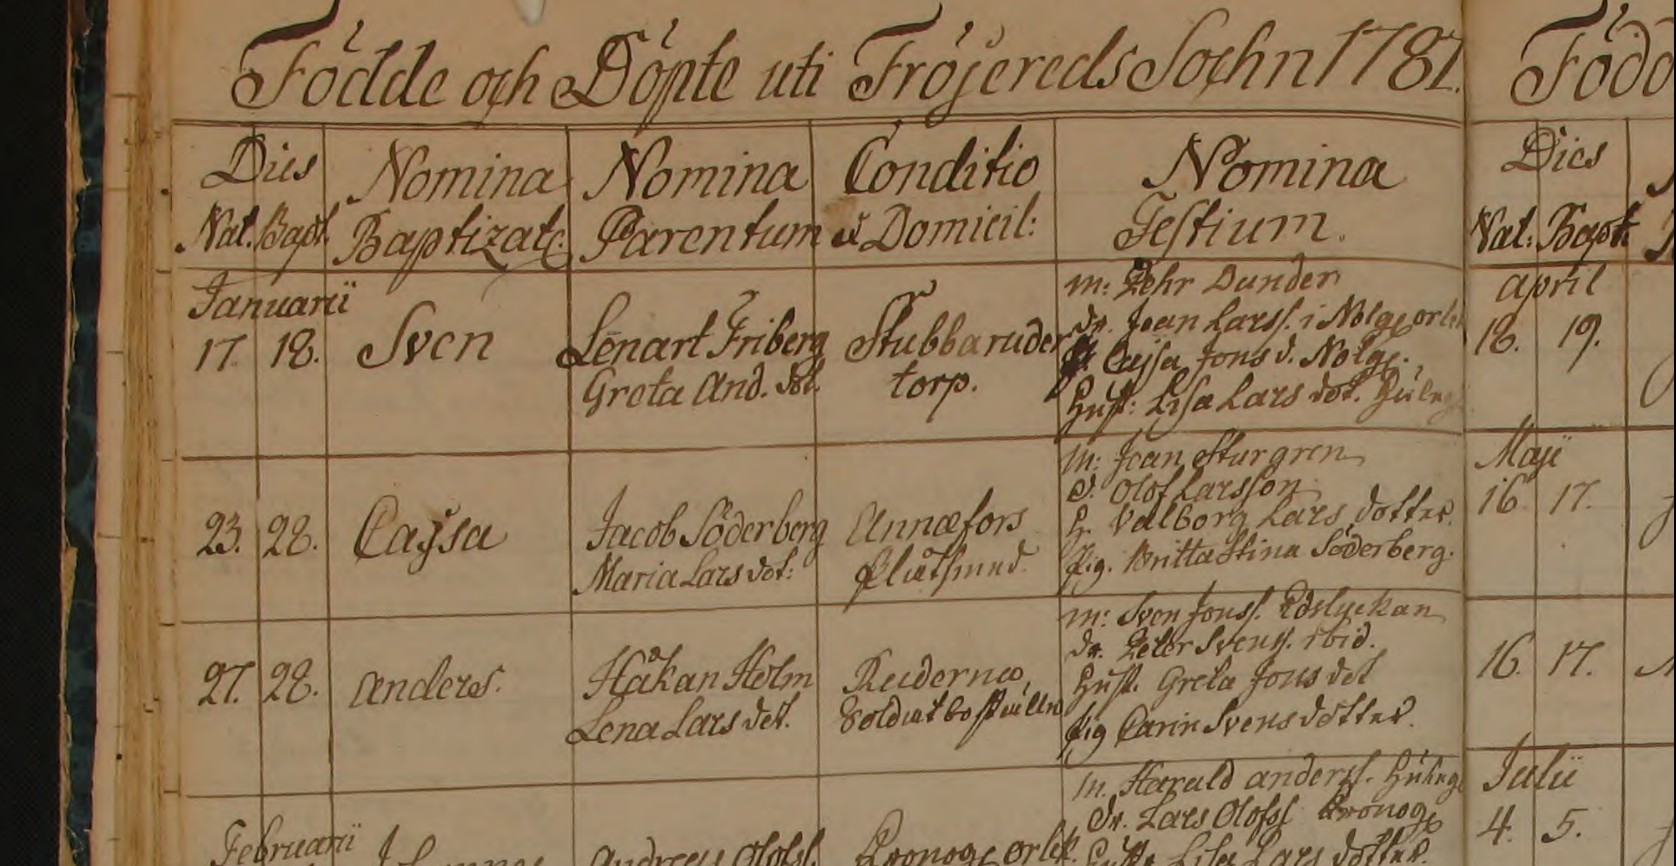 Födde och Döpte uti Fröjereds Sochn 1781.
Dies
Nat. Bapt.
Nomina
Baptizat:
Nomina
Parentum
Conditio
et Domicil:
Nomina
Testium.
Januarii
17. 18.
Sven
Lenart Friberg
Greta And. dot.
Stubbaruder
torp.
m: Pehr Dunder
dr. Joan Larss. i Nolg
Cajsa Jons d. Nolg.
Hust: Lisa Lars dot.
23. 28.
Caÿsa
Jacob Söderberg
Maria Lars dot:
Annæfors
m: Joan Sturgren
d. Olof Larsson
h. Valborg Lars dotter.
pig. Britta Stina Söderberg.
27. 28.
Anders.
Håkan Holm
Lena Lars dot.
Ruderna,
Soldat bostället
m: Sven Jonss. Edslyckan
dr. Peter Svenss. ibid.
Hust. Greta Jons dot
pig Carin Svens dotter.
Februarii
Andreas Olofss.
m. Harald anderss.
dr. Lars Olofss Kronog
Lisa Lars dotter.
Född
Dies
Nat: Bapt
april
18. 19.
Maji
16 17.
16. 17.
Julii
4. 5.